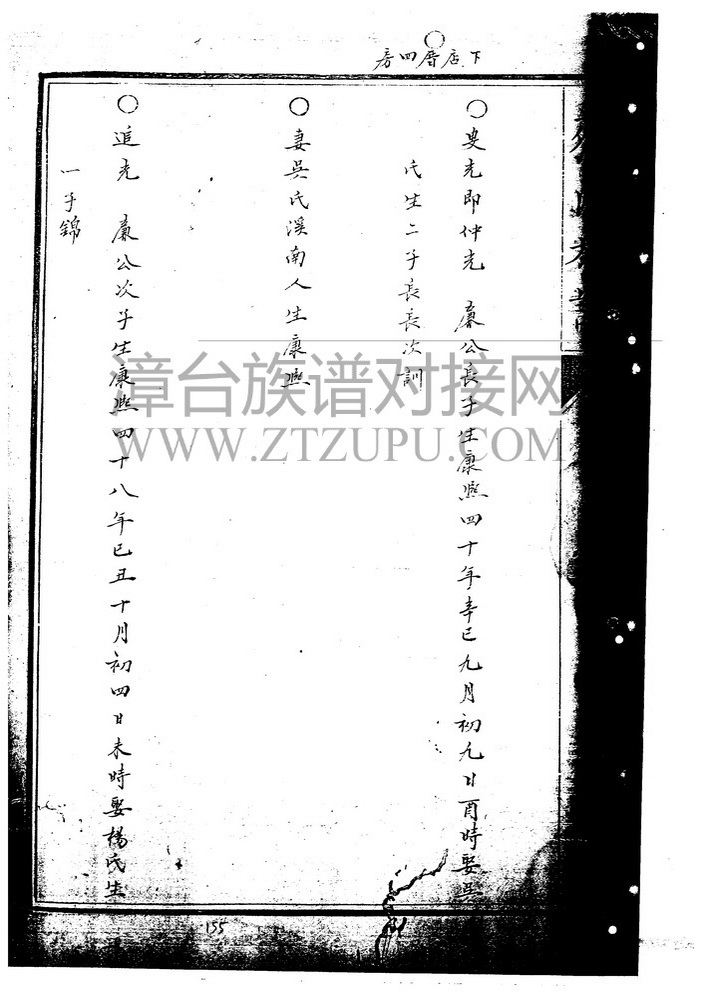 下店厝四房
叟光即仲光 廉公長子生康熙四十年辛巳九月初九日酉時娶吳
氏生二子長長次訓
妻吳氏溪南人生康熙
追光 廉公次子生康熙四十八年已丑十月初四日未時娶楊氏生
一子錦
漳台族谱对接网
WWW.ZTZUPU.COM
155